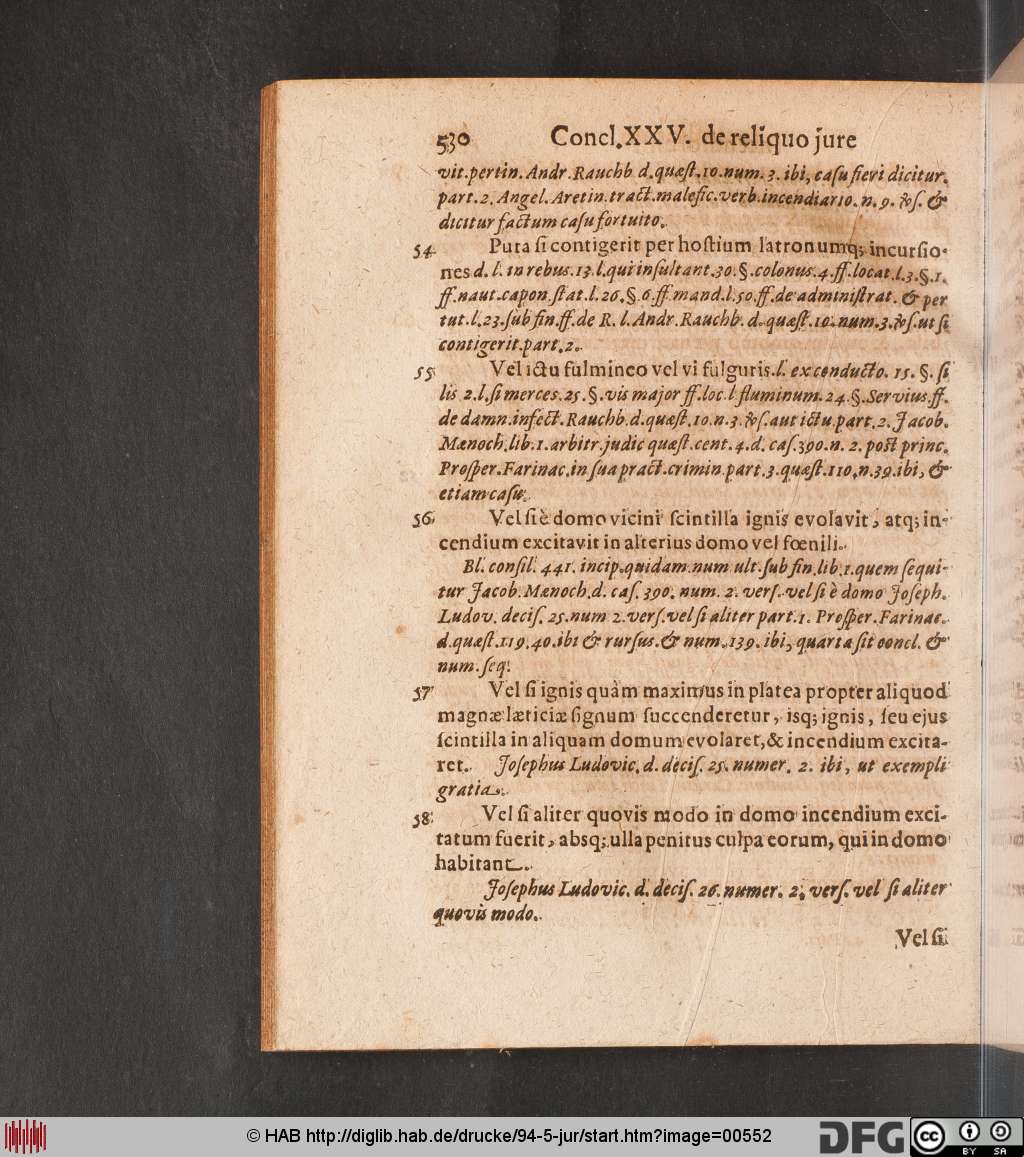 530 Concl. XXV. de reliquo jure
vit. pertin. Andr. Rauchb. d. quæst. 10. num. 3. ibi, casu fieri dicitur.
part. 2. Angel. Aretin. tract. malefic. verb. incendiario. n. 9. &s. &
dicitur factum casu fortuito.
54. Puta si contigerit per hostium latronumq; incursio-
nes d. l. in rebus. 13. l. qui insultant. 30. §. colonus. 4. ff. locat. l. 3. §. 1.
ff. naut. capon. stat. l. 26. §. 6. ff. mand. l. 50. ff. de administrat. & per
tut. l. 23. sub fin. ff. de R. l. Andr. Rauchb. d. quæst. 10. num. 3. &s. ut si
contigerit. part. 2.
55. Vel ictu fulmineo vel vi fulguris. l. ex conducto. 15. §. si
lis 2. l. si merces. 25. §. vis major ff. loc. l fluminum. 24. §. Servius. ff.
de damn. infect. Rauchb. d. quæst. 10. n. 3. &s. aut ictu. part. 2. Jacob.
Mænoch. lib. 1. arbitr. judic quæst. cent. 4. d. cas. 390. n. 2. post princ.
Prosper. Farinac. in sua pract. crimin. part. 3. quæst. 110. n. 39. ibi, &
etiam casu.
56. Vel si è domo vicini scintilla ignis evolavit, atq; in-
cendium excitavit in alterius domo vel fœnili.
Bl. consil. 441. incip. quidam. num ult. sub fin. lib. 1. quem sequi-
tur Jacob. Mænoch. d. cas. 390. num. 2. vers. vel si è domo Joseph.
Ludov. decis. 25. num 2. vers. vel si aliter part. 1. Prosper. Farinac.
d. quæst. 119. 40. ibi & rursus. & num. 139. ibi, quarta sit concl. &
num. seq.
57. Vel si ignis quàm maximus in platea propter aliquod
magnæ læticiæ signum succenderetur, isq; ignis, seu ejus
scintilla in aliquam domum evolaret, & incendium excita-
ret. Josephus Ludovic. d. decis. 25. numer. 2. ibi, ut exempli
gratia.
58. Vel si aliter quovis modo in domo incendium exci-
tatum fuerit, absq; ulla penitus culpa eorum, qui in domo
habitant.
Josephus Ludovic. d. decis. 26. numer. 2. vers. vel si aliter
quovis modo.
Vel si
© HAB http://diglib.hab.de/drucke/94-5-jur/start.htm?image=00552
DFG
cc BY SA